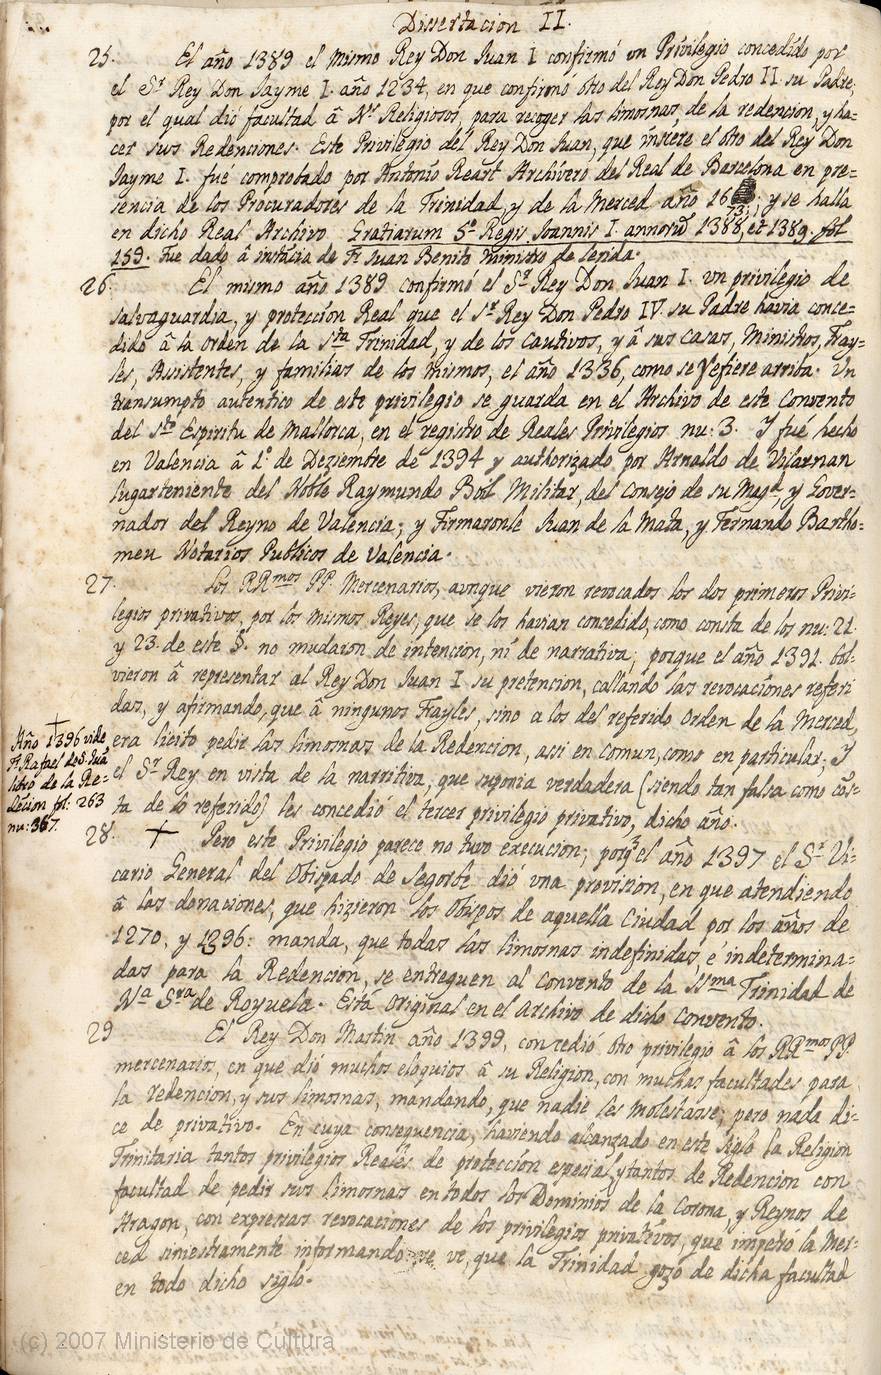 Dissertacion II.
25. El año 1389 el mismo Rey Don Juan I confirmó vn Privilegio concedido por
el Sr Rey Don Jayme I. año 1234, en que confirmó otro del Rey Don Pedro II su Padre,
por el qual dió facultad â Nrs Religiosos, para recoger las limosnas, de la redencion, y ha=
cer sus Redenciones. Este Privilegio del Rey Don Juan, que insere el otro del Rey Don
Jayme I. fué comprobado por Antonio Reart Archivero del Real de Barcelona en pre=
sencia de los Procuradores de la Trinidad, y de la Merced año 1673; y se halla
en dicho Real Archivo Gratiarum Sc Regis Joannis I annorũ 1388, et 1389. fol
159. Fue dado â instãcia de Fr Juan Benito Ministro de Lerida.
26. El mismo año 1389 confirmó el Sr Rey Don Juan I. vn privilegio de
salvaguardia, y protección Real que el Sr Rey Don Pedro IV su Padre havia conce=
dido â la Orden de la Sta Trinidad, y de los Cautivos, y â sus casas, Ministros, Fray=
les, Assistentes, y familias de los mismos, el año 1336, como se refiere arriba. Un
transumpto autentico de este privilegio se guarda en el Archivo de este Convento
del Sto Espiritu de Mallorca, en el registro de Reales Privilegios nu: 3. Y fué hecho
en Valencia â 1o de Deziembre de 1394 y authorizado por Arnaldo de Vilarnan
lugarteniente del Noble Raymundo Boil Militar, del Consejo de su Magd, y Gover=
nador del Reyno de Valencia; y Firmaronle Juan de la Mata, y Fernando Bartho=
meu Notarios Publicos de Valencia.
27. Los RRmos PP. Mercenarios, aunque vieron revocados los dos primeros Privi=
legios privativos, por los mismos Reyes, que se los havian concedido, como consta de los nu: 21.
y 23. de este §. no mudaron de intencion, ni de narrativa; porque el año 1391. bol=
vieron â representar al Rey Don Juan I su pretencion, callando las revocaciones referi
das, y afirmando, que â ningunos Frayles, sino a los del referido Orden de la Merced,
era licito pedir las limosnas de la Redencion, assi en comun, como en particular; Y
el Sr Rey en vista de la narritiva, que suponia verdadera (siendo tan falsa como cõs=
ta de lo referido) les concedió el tercer privilegio privativo, dicho año.
+
Año 1396 vide
Fr. Rafael de S. Juã
libro de la Re=
dẽcion fol: 263
nu: 367.
28. + Pero este Privilegio parece no tuvo execucion; porq̃ el año 1397 el Sr Vi=
cario General del Obispado de Segorbe dió vna provision, en que atendiendo
â las donaciones, que hizieron los Obispos de aquella Ciudad por los años de
1270, y 1296: manda, que todas las limosnas indefinidas, é indetermina=
das para la Redencion, se entreguen al Convento de la SSma Trinidad de
Na Sra de Royuela. Esta Original en el Archivo de dicho Convento.
29 El Rey Don Martin año 1399, concedió otro privilegio â los RRmos PP.
mercenarios, en que dió muchos eloquios â su Religion, con muchas facultades para
la redencion, y sus limosnas, mandando, que nadie les molestasse; pero nada di=
ce de privativo. En cuya consequencia, haviendo alcanzado en este siglo la Religion
Trinitaria tantos privilegios Reales de protección especial, y tantos de Redencion con
facultad de pedir sus limosnas en todos los Dominios de la Corona, y Reynos de
Aragon, con expressas revocaciones de los privilegios privativos, que impetró la Mer=
ced siniestramente informando: se ve, que la Trinidad gozó de dicha facultad
en todo dicho siglo.
(c) 2007 Ministerio de Cultura